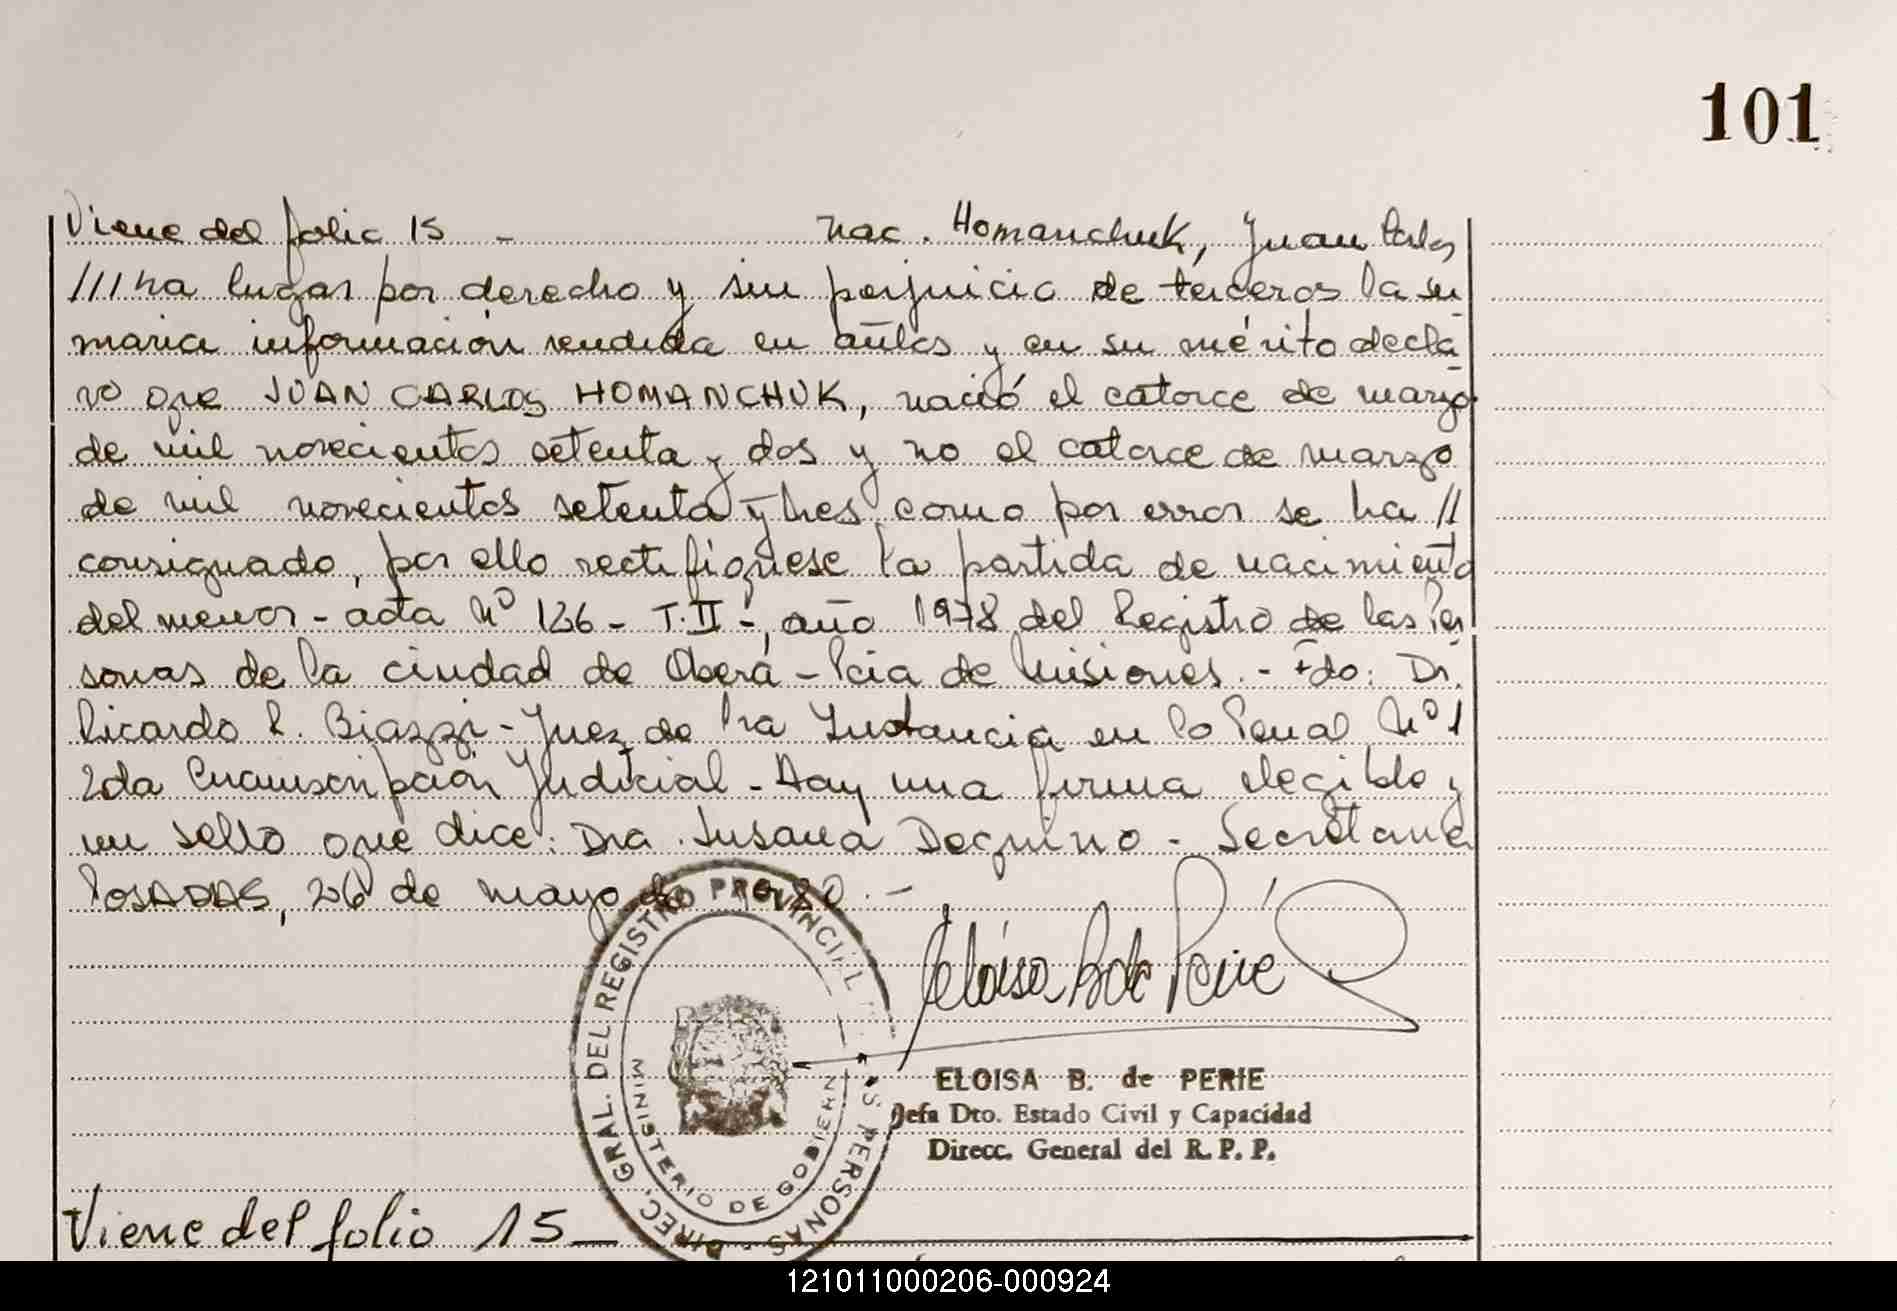 101
Viene del folio 15 - nac. Homanchuk, Juan Carlos
/// ha lugar por derecho y sin perjuicio de terceros la su
maria información rendida en autos y en su mérito decla
ro que JUAN CARLOS HOMANCHUK, nació el catorce de marzo
de mil novecientos setenta y dos y no el catorce de marzo
de mil novecientos setenta y tres como por error se ha //
consignado, por ello rectifíquese la partida de nacimiento
del menor - acta Nº 126 - T.II -, año 1978 del Registro de las Per
sonas de la ciudad de Oberá - Pcia de Misiones. - Fdo: Dr.
Ricardo R. Biazzi - Juez de 1ra Instancia en lo Penal Nº 1
2da Circunscripción Judicial - Hay una firma elegible y
un sello que dice: Dra. Susana Dequino - Secretaria
POSADAS, 26 de mayo de 1980 . -
Eloisa B de Perié
DIREC. GRAL. DEL REGISTRO PROVINCIAL PERSONAS
MINISTERIO DE GOBIERN
ELOISA B. de PERIE
Jefa Dto. Estado Civil y Capacidad
Direcc. General del R. P. P.
Viene del folio 15
121011000206-000924